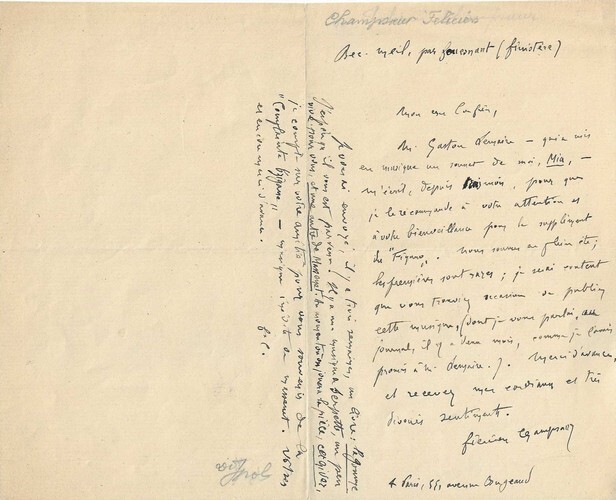 Champsaur Félicien
Beg-Meil, par Fouesnant (finistère)
Mon cher Confrère,
M. Gaston Lemaire — qui a mis
en musique un sonnet de moi, Mia, —
m'écrit, depuis mois, pour que
je le recommande à votre attention et
à votre bienveillance pour le supplément
du "Figaro". Nous sommes en plein été;
les premières sont rares; je serai content
que vous trouviez occasion de publier
cette musique (dont je vous parlai, au
journal, il y a deux mois, comme je l'avais
promis à M. Lemaire.). Merci d'avance,
et recevez mes cordiaux et très
dévoués sentiments.
Félicien Champsaur
à Paris, 55, avenue Bugeaud
Je vous ai envoyé, il y a trois semaines, un livre:
J'espère qu'il vous est parvenu. Il y a une musique de Serpette, un peu
pour vous, et une autre de Massenet.
je compte sur votre amitié pour vous souvenir de la
" — musique inédite de Messenet. Votre
et encore merci d'avance.
F. C.